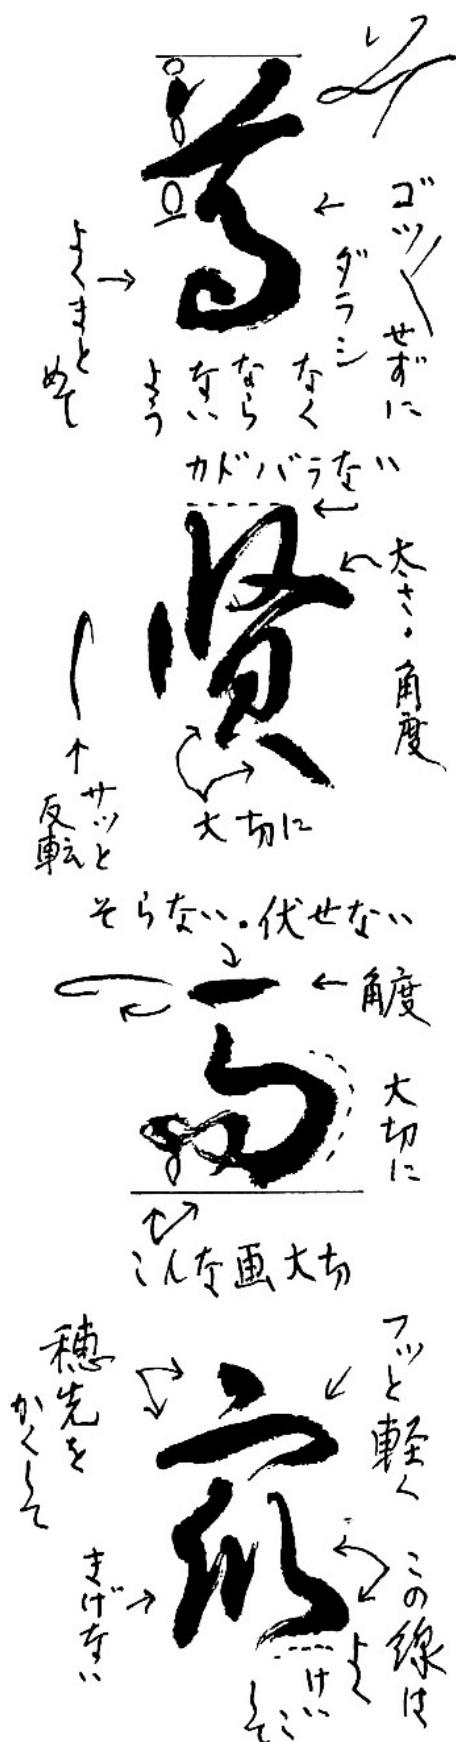 尊
ゴツゴツせずに
ダラシ
なく
なら
ない
よう
よくまとめて
カドバラない
賢
太さ・角度
サッと
反転
大切に
そらない・伏せない
而
角度
大切に
こんな画大切
フッと軽く
穂先を
かくして
この線は
よく
けいこ
して
まげない